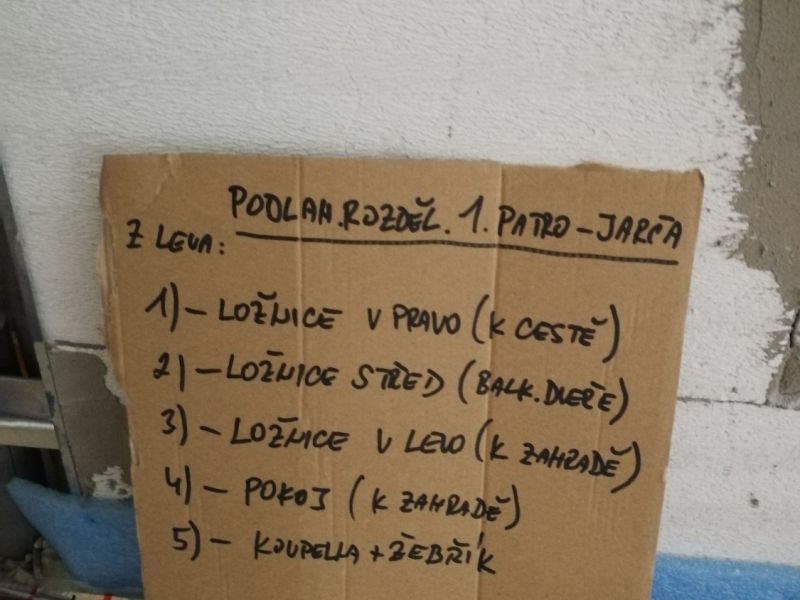 PODLAH.ROZDĚL. 1. PATRO - JARČA
Z LEVA:
1) - LOŽNICE V PRAVO (K CESTĚ)
2) - LOŽNICE STŘED (BALK. DVEŘE)
3) - LOŽNICE V LEVO (K ZAHRADĚ)
4) - POKOJ (K ZAHRADĚ)
5) - KOUPELNA + ŽEBŘÍK